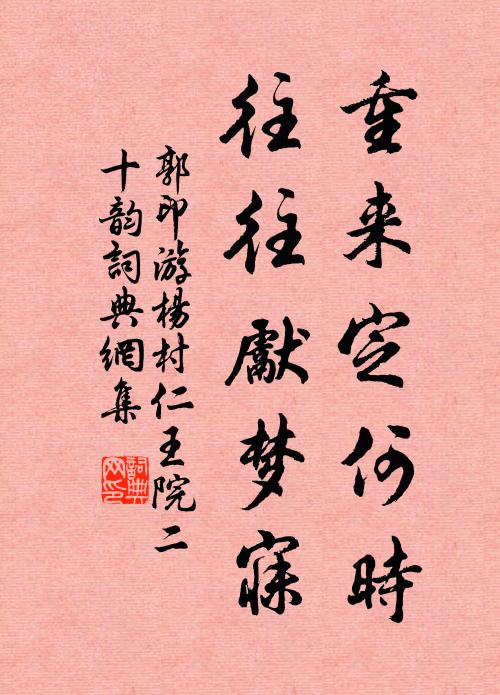 重来定何時
往往獻梦寐
郭印游楊村仁王院二
十韵詞典網集
詞典
网印